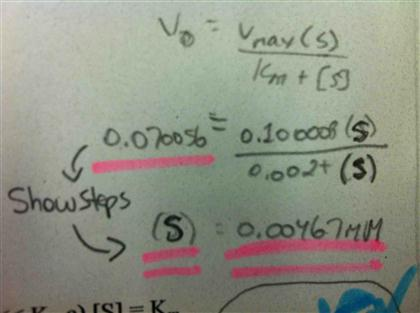 V₀ = Vmax(S)
Km + [S]
0.070056 = 0.100008(S)
0.002+ (S)
Show Steps
(S) = 0.00467MM
[S] = K